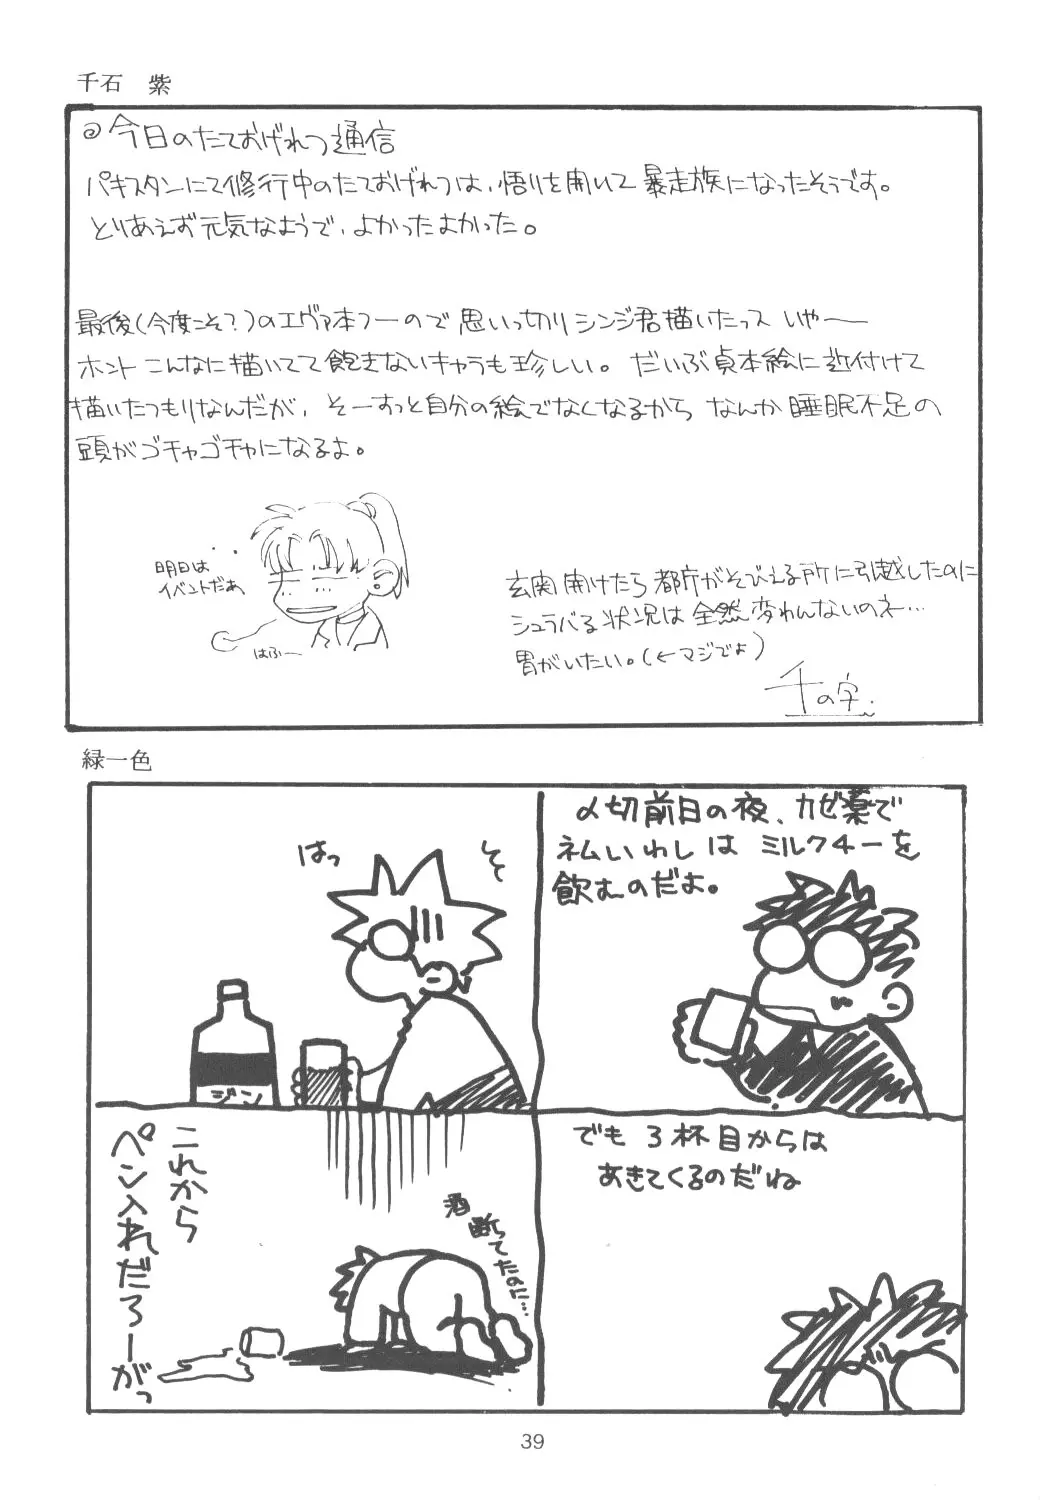 千石 紫
今日のたておげれつ通信
パキスタンにて修行中のたておげれつは、悟りを開いて暴走族になったそうです。
とりあえず元気なようで、よかったよかった。
最後(今度こそ?)のエヴァ本つーので思いっ切りシンジ君描いたっス いやー
ホント こんなに描いてて飽きないキャラも珍しい。だいぶ貞本絵に近付けて
描いたつもりなんだが、そーすっと自分の絵でなくなるから なんか睡眠不足の
頭がゴチャゴチャになるよ。
明日は
イベントだぁ
はふー
玄関開けたら都庁がそびえる所に引越したのに
シュラバる状況は全然変わんないのネー…
胃がいたい。(←マジでよ)
千の字.
緑一色
〆切前日の夜、カゼ薬で
ネムいわしは ミルクチーを
飲むのだよ。
でも 3杯目からは
あきてくるのだね
そ
はっ
ジン
酒断ってたのに…
これから
ペン入れだろーがっ
39